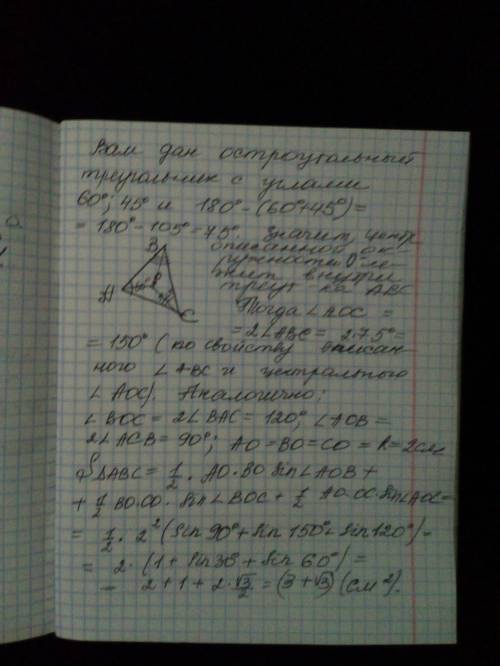 Вам дан остроугольный
треугольник с углами
60°; 45° и 180° - (60°+45°) =
= 180° - 105° = 75°. Значит, центр
B описанной ок-
ружности O ле-
жит внутри
A треуг-ка ABC
C Тогда ∠AOC =
= 2∠ABC = 2·75° =
= 150° (по свойству вписан-
ного ∠ABC и центрального
∠AOC). Аналогично:
∠BOC = 2∠BAC = 120°, ∠AOB =
2∠ACB = 90°; AO=BO=CO=R=2см
S△ABC = 1/2 · AO·BO sin∠AOB +
+ 1/2 BO·OC· sin∠BOC + 1/2 AO·OC·sin∠AOC =
= 1/2 · 2² (sin 90° + sin 150° + sin 120°) =
= 2 · (1 + sin 30° + sin 60°) =
= 2 + 1 + 2 · √3/2 = (3 + √3) (см²).